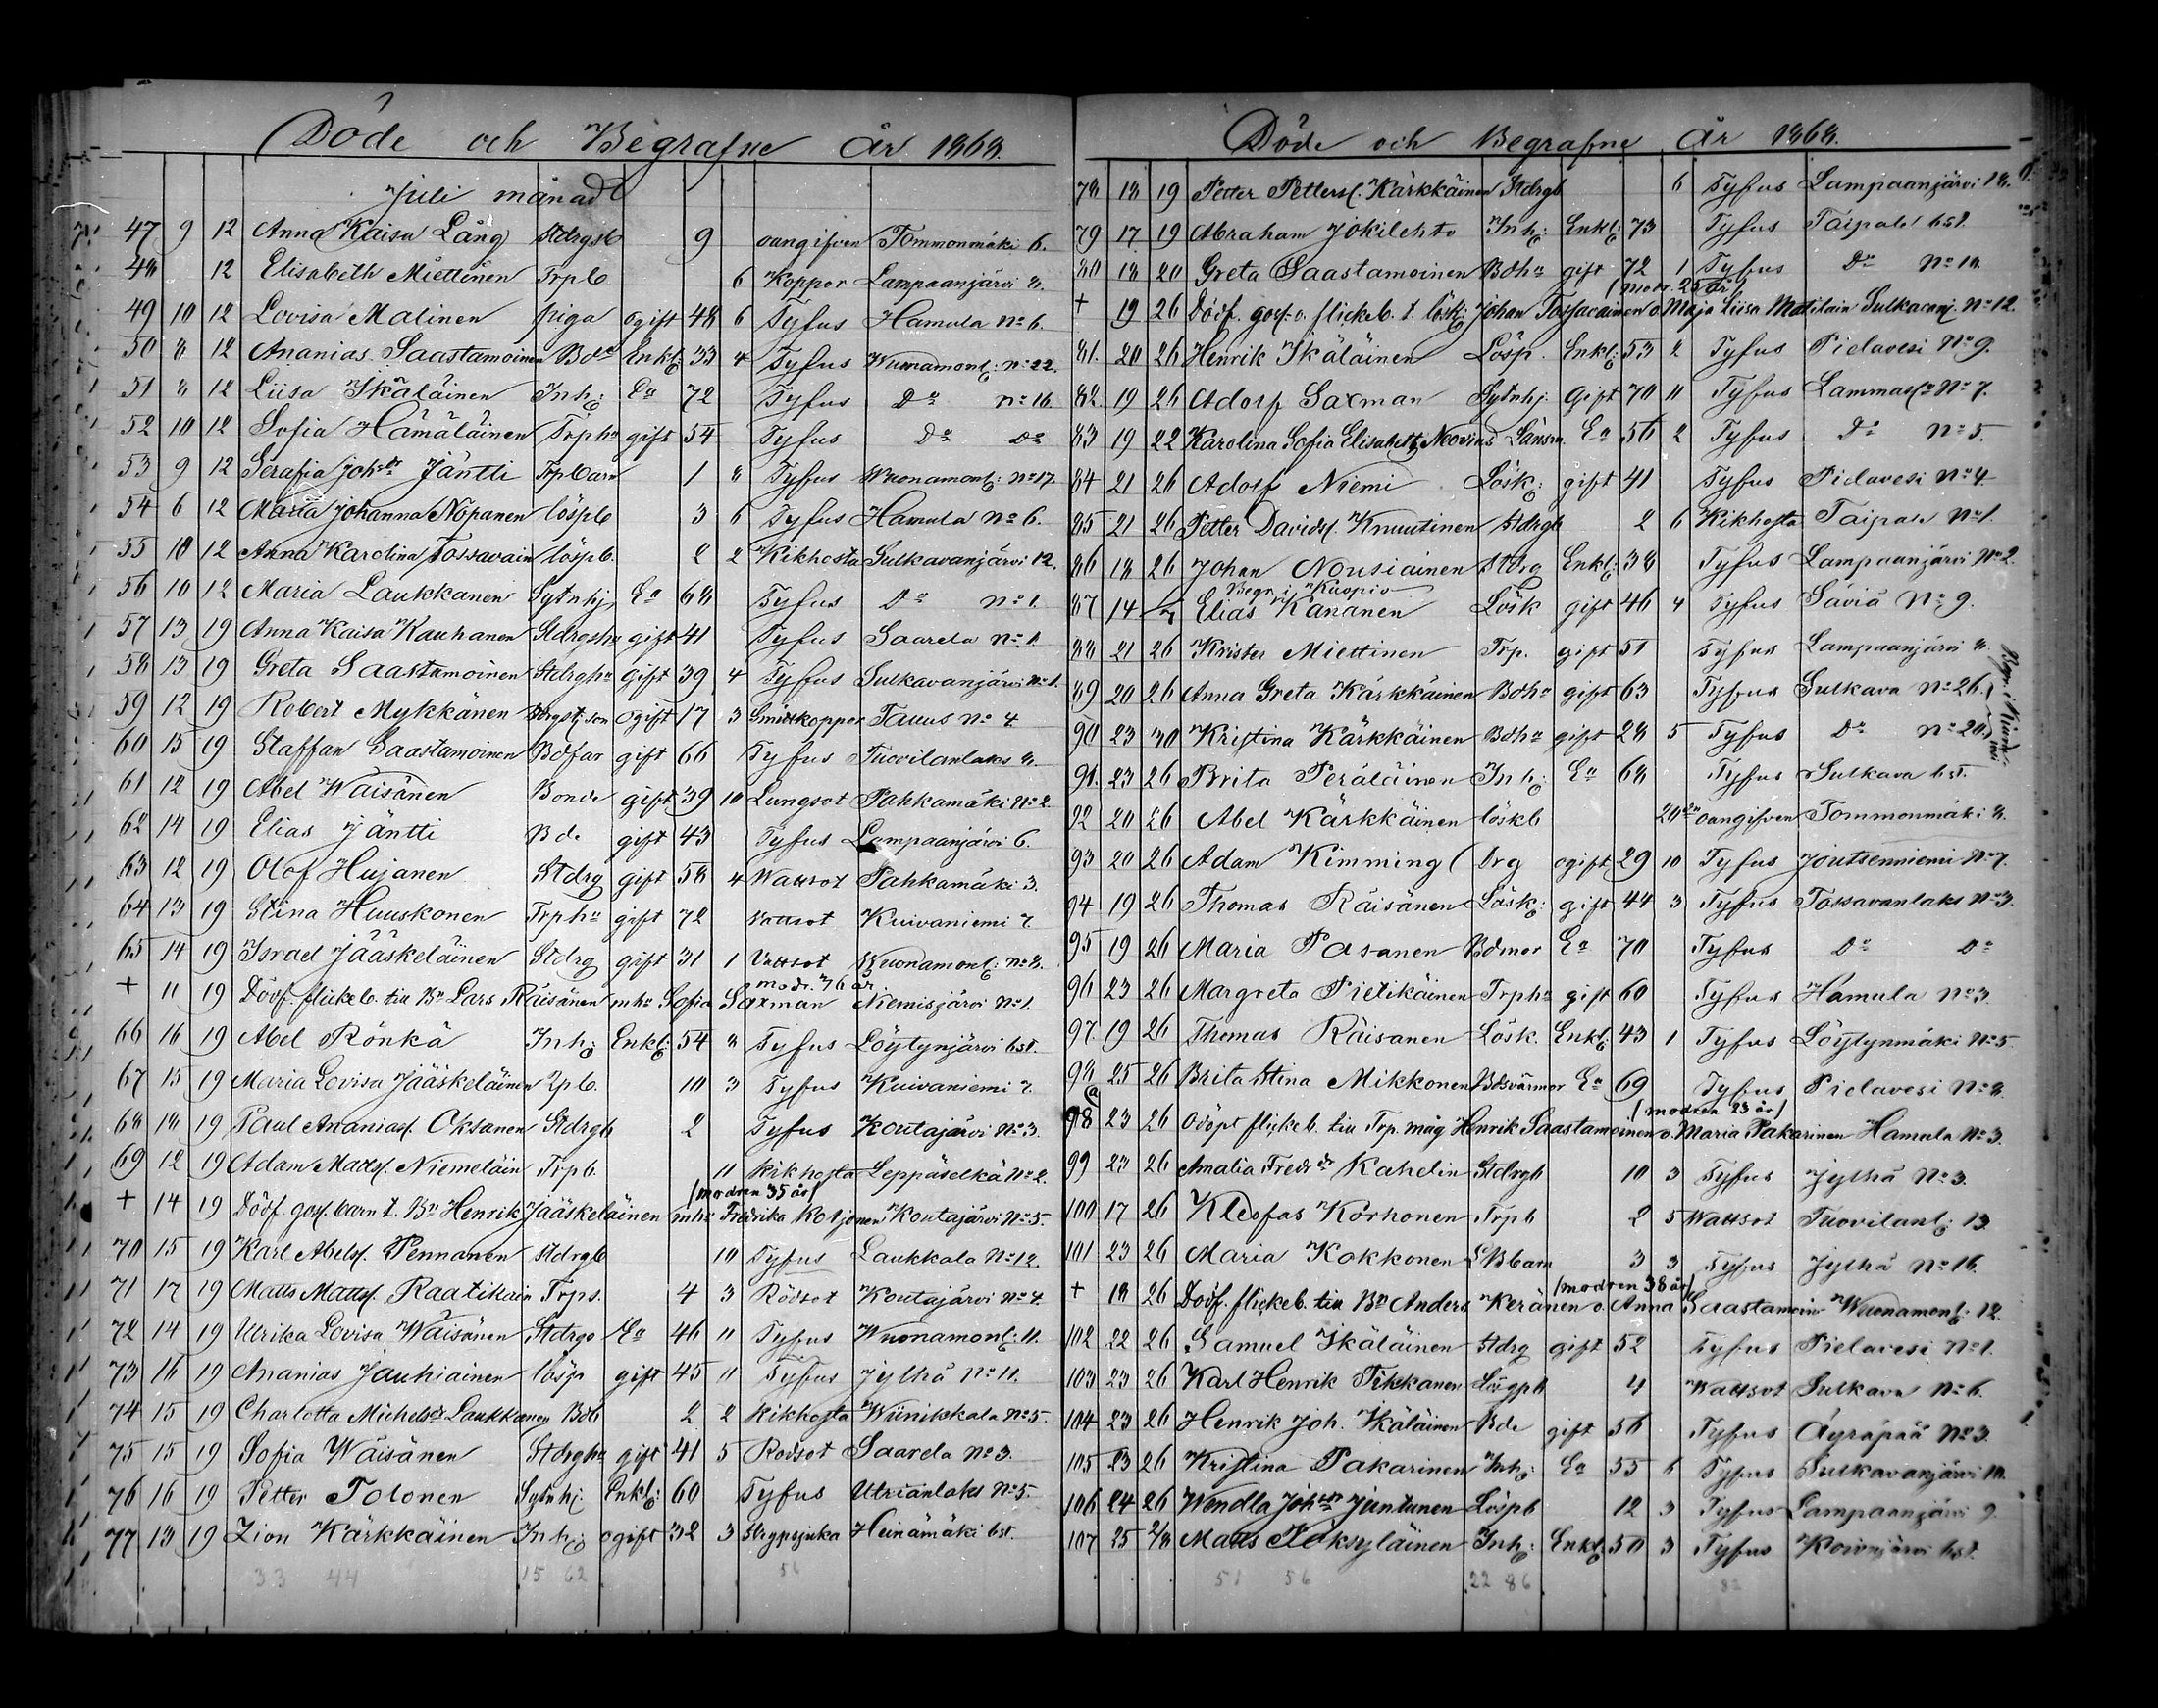 Döde och Begrafne år 1868.
Juli månad
47 9 12 Anna Kaisa Lång Stdrgsb 9 oangifven Tommonmäki 6.
48 12 Elisabeth Miettinen Trpb 6 Koppor Lampaanjärvi 8.
49 10 12 Lovisa Malinen piga ogift 48 6 Tyfus Hamula No 6.
50 8 12 Ananias Saastamoinen Bde Enkl: 33 4 Tyfus Wuonamonl: No 22.
51 8 12 Liisa Ikäläinen Inh: Do 72 Tyfus Do No 16.
52 10 12 Sofia Hämäläinen Trphu gift 54 Tyfus Do Do
53 9 12 Serafia Johsdr Jäntti Trpbarn 1 8 Tyfus Wuonamonl: No 17.
54 6 12 Maria Johanna Nopanen löspb 3 6 Tyfus Hamula No 6.
55 10 12 Anna Karolina Tossavain löspb. 2 2 Kikhosta Sulkavanjärvi 12.
56 10 12 Maria Laukkanen Sytnhj Ea 68 Tyfus Do No 1.
57 13 19 Anna Kaisa Kauhanen Stdrgshu gift 41 Tyfus Saarela No 1.
58 13 19 Greta Saastamoinen Stdrghu gift 39 4 Tyfus Sulkavanjärvi No 1.
59 12 19 Robert Mykkänen son ogift 17 3 Smittkoppor Taus No 4.
60 15 19 Staffan Saastamoinen Bdfar gift 66 Tyfus Tuovilanlaks 8.
61 12 19 Abel Wäisänen Bonde gift 39 10 Lungsot Pahkamäki No 2.
62 14 19 Elias Jäntti Bde gift 43 Tyfus Lampaanjärvi 6.
63 12 19 Olof Hujanen Stdrg gift 58 4 Wattsot Pahkamäki 3.
64 13 19 Stina Huuskonen Trphu gift 72 Vattsot Kuivaniemi 7.
65 14 19 Israel Jääskeläinen Stdrg gift 31 1 Vattsot Wuonamonl: No 8.
modr. 26 år
+ 11 19 Dödf. flickeb. till Bn Lars Räisänen m hu Sofia Saxman Niemisjärvi No 1.
66 16 19 Abel Rönkä Inh: Enkl: 54 8 Tyfus Löytynjärvi bst.
67 15 19 Maria Lovisa Jääskeläinen Tpb. 10 3 Tyfus Kuivaniemi 7.
68 18 19 Paul Ananiasf. Oksanen Stdrgb 2 Tyfus Koutajärvi No 3.
69 12 19 Adam Mattsf. Niemeläin Trpb. 11 Kikhosta Leppäselkä No 2.
/modren 35 år/
+ 14 19 Dödf. gosf. barn t. Bn Henrik Jääskeläinen m hu Fredrika Kotjonen Koutajärvi No 5.
70 15 19 Karl Abelsf. Pennanen Stdrgb 10 Tyfus Laukkala No 12.
71 17 19 Matts Mattsf. Raatikain Trps. 4 3 Rödsot Koutajärvi No 4.
72 14 19 Ulrika Lovisa Wäisänen Stdrge Ea 46 11 Tyfus Wuonamonl: 11.
73 16 19 Ananias Jauhiainen lösp gift 45 11 Tyfus Jylhä No 11.
74 15 19 Charlotta Michelsdr Laukkanen Bdb 2 2 Kikhosta Wiinikkala No 5.
75 15 19 Sofia Wäisänen Stdrghu gift 41 5 Rodsot Saarela No 3.
76 16 19 Petter Tolonen Sytnhj. Enkl: 60 Tyfus Utrianlaks No 5.
77 13 19 Zion Kärkkäinen Inh: ogift 32 3 Strypsjuka Heinämäki bst.
33 44 15 62 56
Döde och Begrafne År 1868.
78 18 19 Petter Pettersf. Kärkkäinen Stdrgb 6 Tyfus Lampaanjärvi 18.
79 17 19 Abraham Jokilehto Inh: Enkl: 73 Tyfus Taipale bst.
80 18 20 Greta Saastamoinen Bdhu gift 72 1 Tyfus Do No 18.
/modr. 25 år/
+ 19 26 Dödf. gosf. o. flickeb. t. lösk: Johan Tossavainen o. Maja Liisa Matilain Sulkavanj. No 12.
81. 20 26 Henrik Ikäläinen Lösp. Enkl: 53 2 Tyfus Pielavesi No 9.
82. 19 26 Adorf Saxman Sytnhj. Gift 70 11 Tyfus Lammass. No 7.
83 19 22 Karolina Sofia Elisabeth Neovius Länsm. Ea 56 2 Tyfus Do No 5.
84 21 26 Adolf Niemi Lösk: gift 41 Tyfus Pielavesi No 4
85 21 26 Petter Davidsf. Knuutinen Stdrgb 2 6 Kikhosta Taipale No 1.
86 18 26 Johan Nousiainen Stdrg Enkl: 38 Tyfus Lampaanjärvi No 2.
Begr. i Kuopio
87 14 Elias Kananen Lösk gift 46 4 Tyfus Säviä No 9.
88 21 26 Krister Miettinen Trp. gift 51 Tyfus Lampaanjärvi 8.
89 20 26 Anna Greta Kärkkäinen Bdhu gift 63 Tyfus Sulkava No 26.
90 23 30 Kristina Kärkkäinen Bdhu gift 28 5 Tyfus Do No 20.
91. 23 26 Brita Peräläinen Inh: Ea 68 Tyfus Sulkava bst.
92 20 26 Abel Kärkkäinen löskb 20 oangifven Tommonmäki 8.
93 20 26 Adam Kimming Drg ogift 29 10 Tyfus Joutsenniemi No 7.
94 19 26 Thomas Räisänen Lösk: gift 44 3 Tyfus Tossavanlaks No 3.
95 19 26 Maria Pasanen Bdmor Ea 70 Tyfus Do Do
96 23 26 Margreta Pietikäinen Trphu gift 60 Tyfus Hamula No 3.
97. 19 26 Thomas Räisänen Lösk. Enkl: 43 1 Tyfus Löytynmäki No 5.
98 25 26 Brita Stina Mikkonen Bdsvärmor Ea 69 Tyfus Pielavesi No 8.
/modren 23 år/
98a 23 26 Odöpt flickeb. till Trp. måg Henrik Saastamoinen o. Maria Pakarinen Hamula No 3.
99 23 26 Amalia Fredrdr Kahelin Stdrgb 10 3 Tyfus Jylhä No 3.
100 17 26 Kleofas Korhonen Trpb 2 5 Wattsot Tuovilanl: 13.
101 23 26 Maria Kokkonen Bbarn 3 3 Tyfus Jylhä No 16.
/modren 38 år/
+ 18 26 Dödf. flickeb. till Bn Anders Keränen o. Anna Saastamoin Wuonamonl: 12.
102 22 26 Samuel Ikäläinen Stdrg gift 52 Tyfus Pielavesi No 1.
103 23 26 Karl Henrik Tikkanen 4 Wattsot Sulkava No 6.
104 23 26 Henrik Joh. Ikäläinen Bde gift 56 Tyfus Äyräpää No 3.
105 23 26 Kristina Pakarinen Inh: Ea 55 6 Tyfus Sulkavanjärvi 10.
106 24 26 Wendla Johsdr Juntunen Löspb 12 3 Tyfus Lampaanjärvi 9.
107 25 2/8 Matts Pöksyläinen Inh: Enkl: 50 3 Tyfus Koivujärvi bst.
51 56 22 86 82